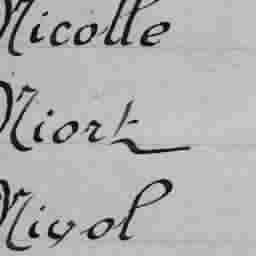 Nicolle
Niort
Nivol